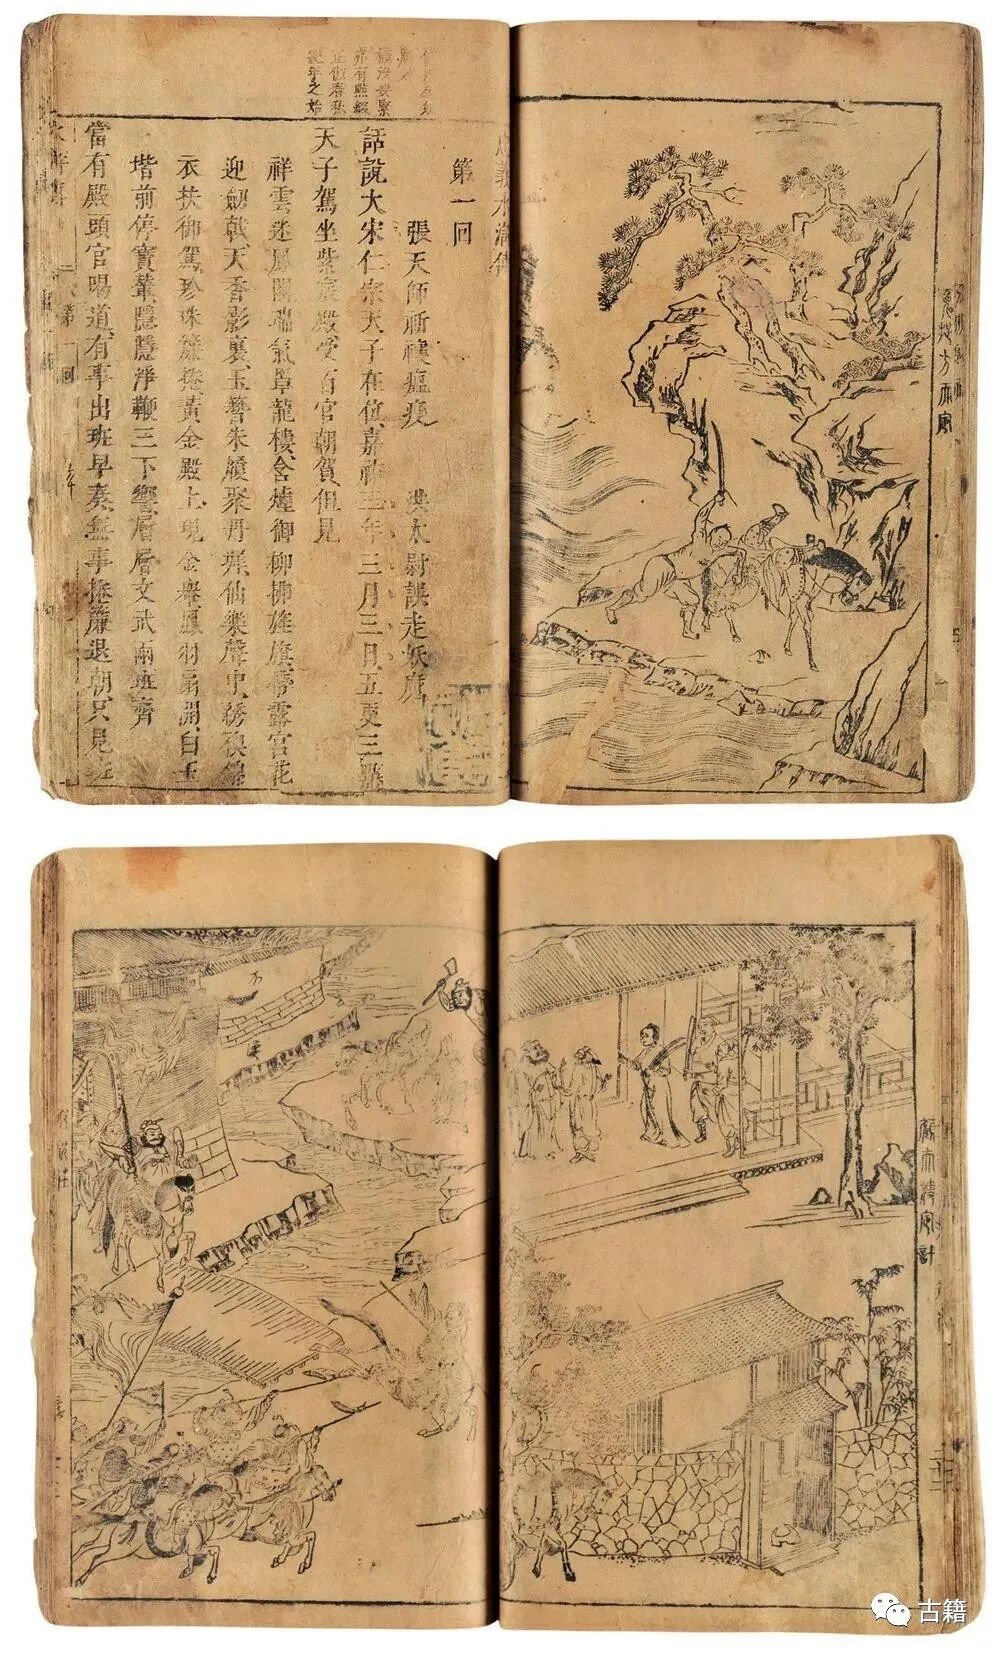 忠義水滸傳
第一回
張天師祈禳瘟疫　洪太尉誤走妖魔
話說大宋仁宗天子在位嘉祐三年三月三日五更三點
天子駕坐紫宸殿受百官朝賀但見
祥雲迷鳳閣瑞氣罩龍樓含煙御柳拂旌旗帶露宮花
迎劒戟天香影裏玉簪朱履聚丹墀仙樂聲中綉襖錦
衣扶御駕珍珠簾捲黃金殿上現金轝鳳羽扇開白玉
堦前停寶輦隱隱淨鞭三下響層層文武兩班齊
當有殿頭官喝道有事出班早奏無事捲簾退朝只見班
亦有點綴
正倣春秋
紀年之始
水滸傳
第一回
古籍